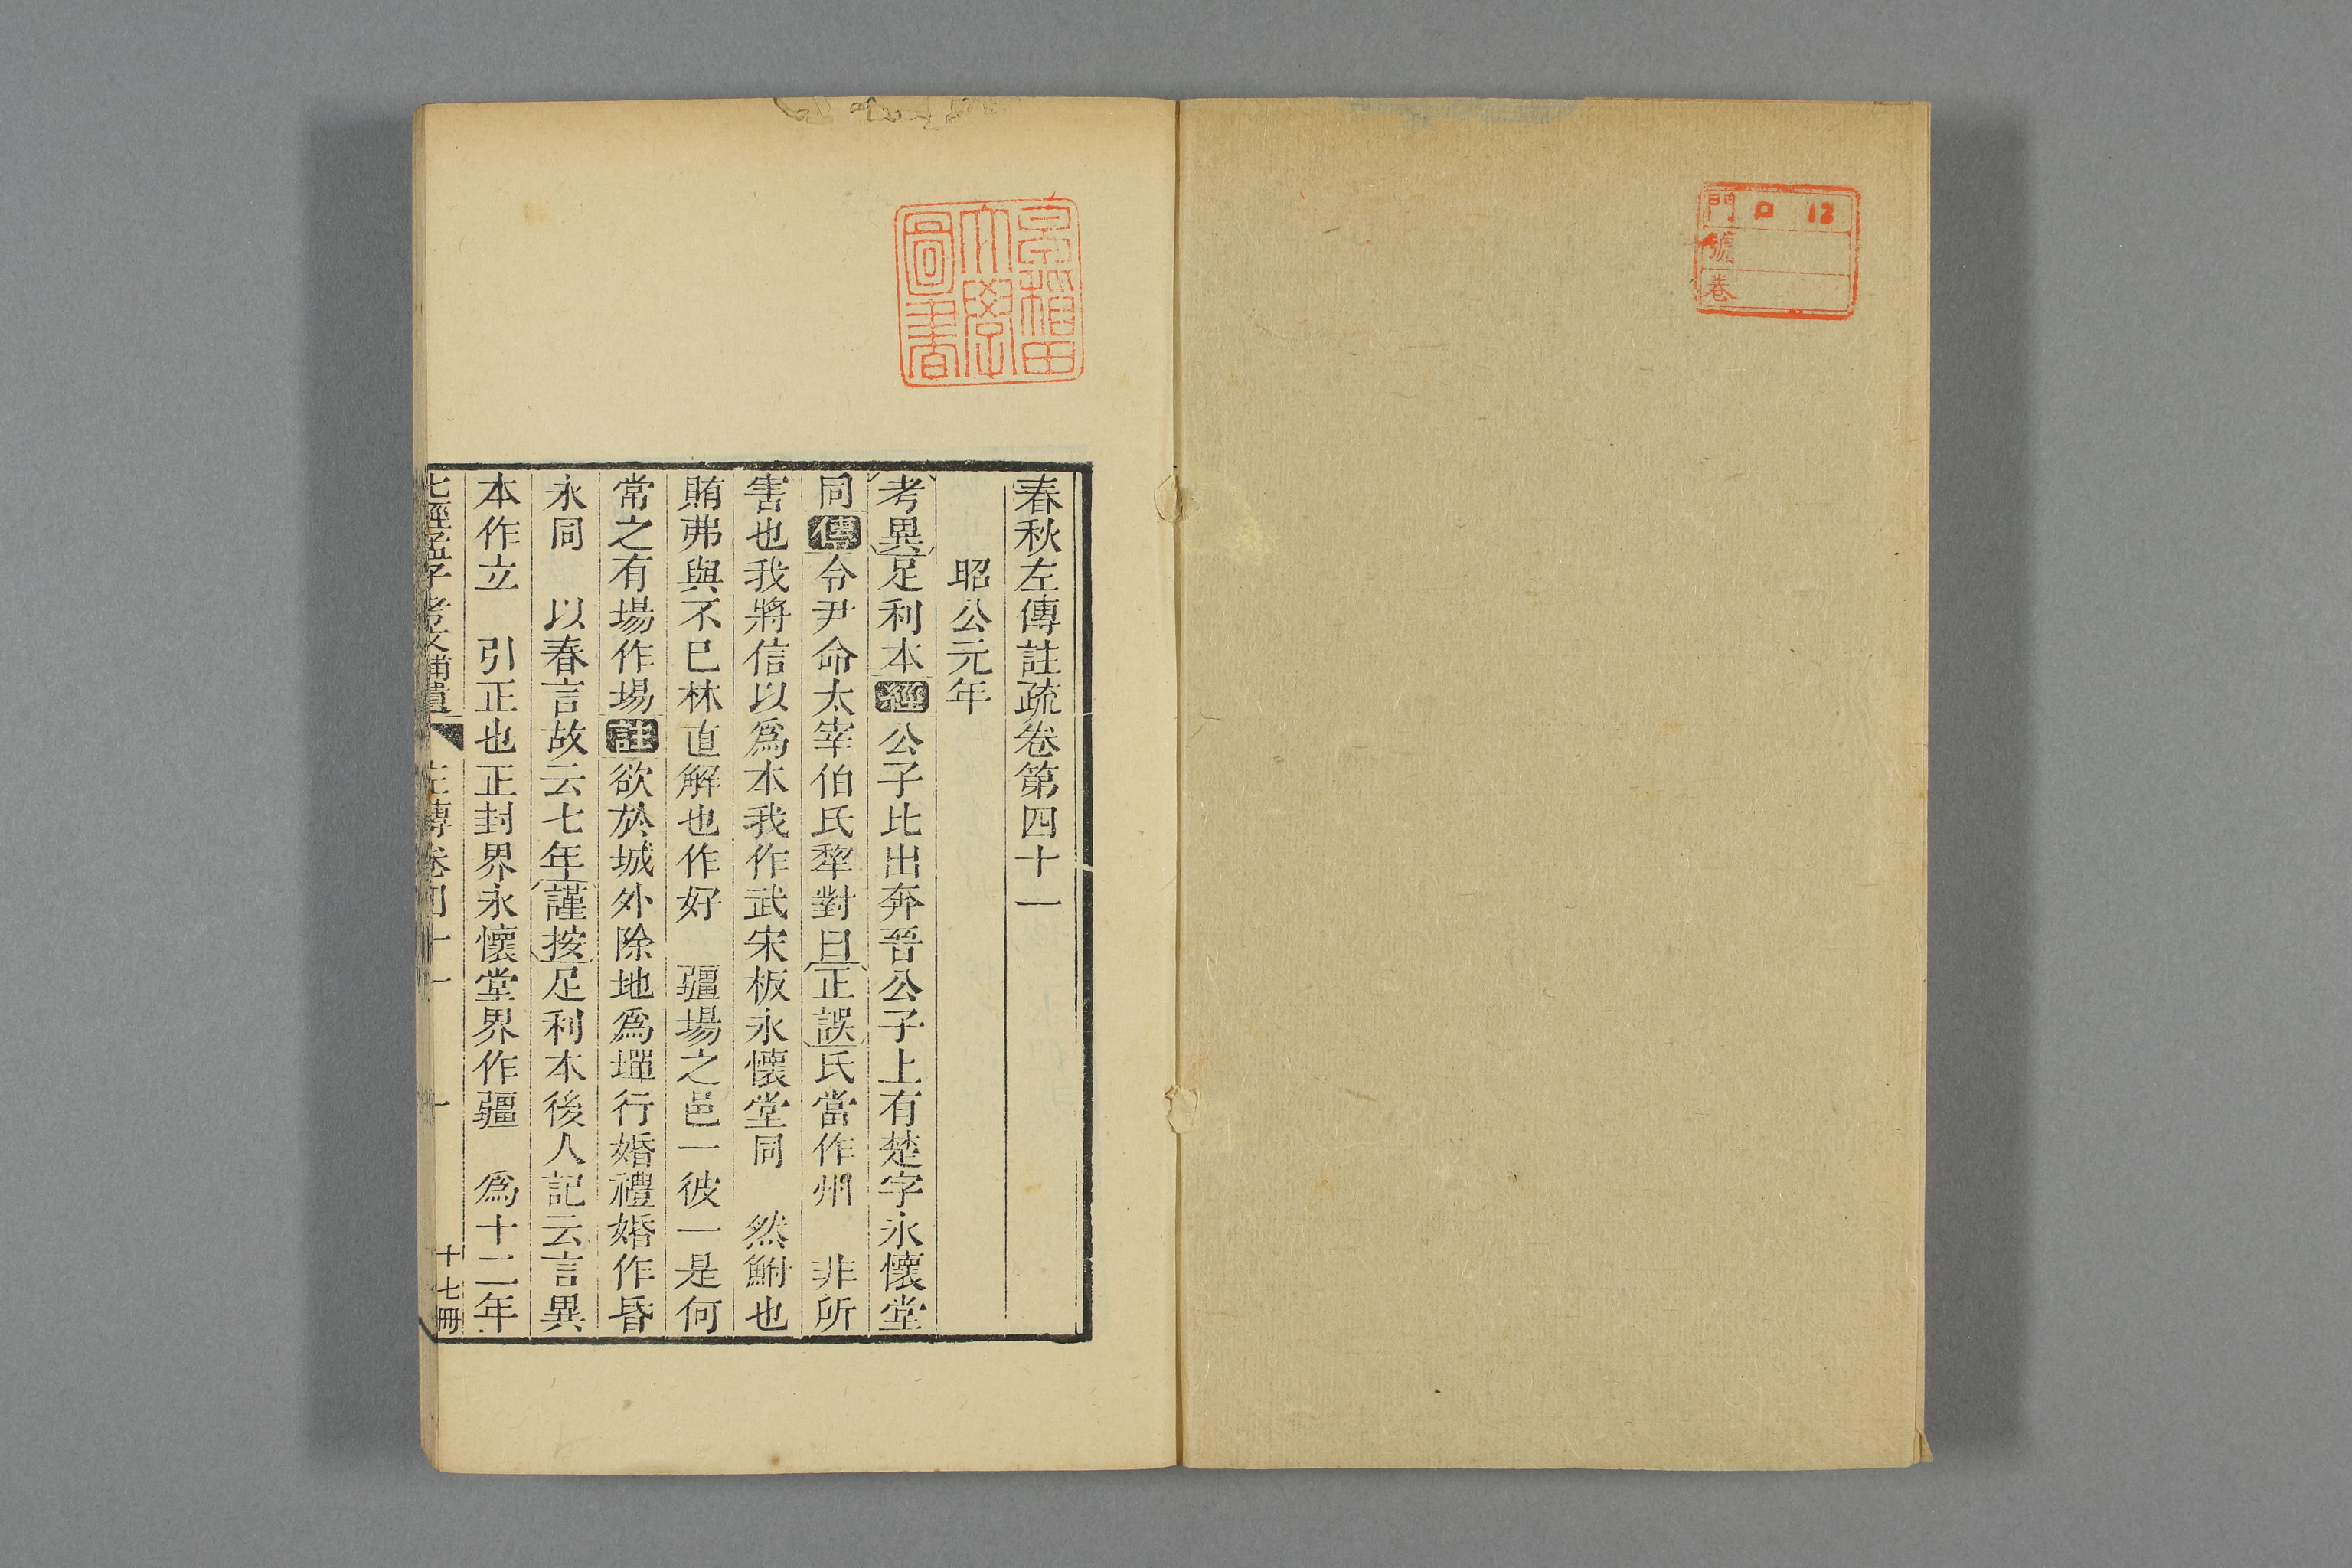 門 ロ 12
號
卷
早稲田
大學
圖書
春秋左傳註疏卷第四十一
昭公元年
考異足利本經公子比出奔晉公子上有楚字永懷堂
同傳令尹命太宰伯氏犂對曰正誤氏當作州 非所
害也我將信以爲本我作武宋板永懷堂同 然鮒也
賄弗與不已林直解也作好 疆場之邑一彼一是何
常之有場作埸註欲於城外除地爲墠行婚禮婚作昏
永同 以春言故云七年謹按足利本後人記云言異
本作立 引正也正封界永懷堂界作疆 爲十二年
七經孟子考文補遺 左傳卷四十一 一 十七冊